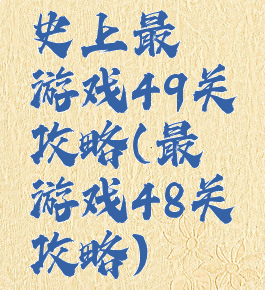 史上最
游戏49关
攻略(最
游戏48关
攻略)